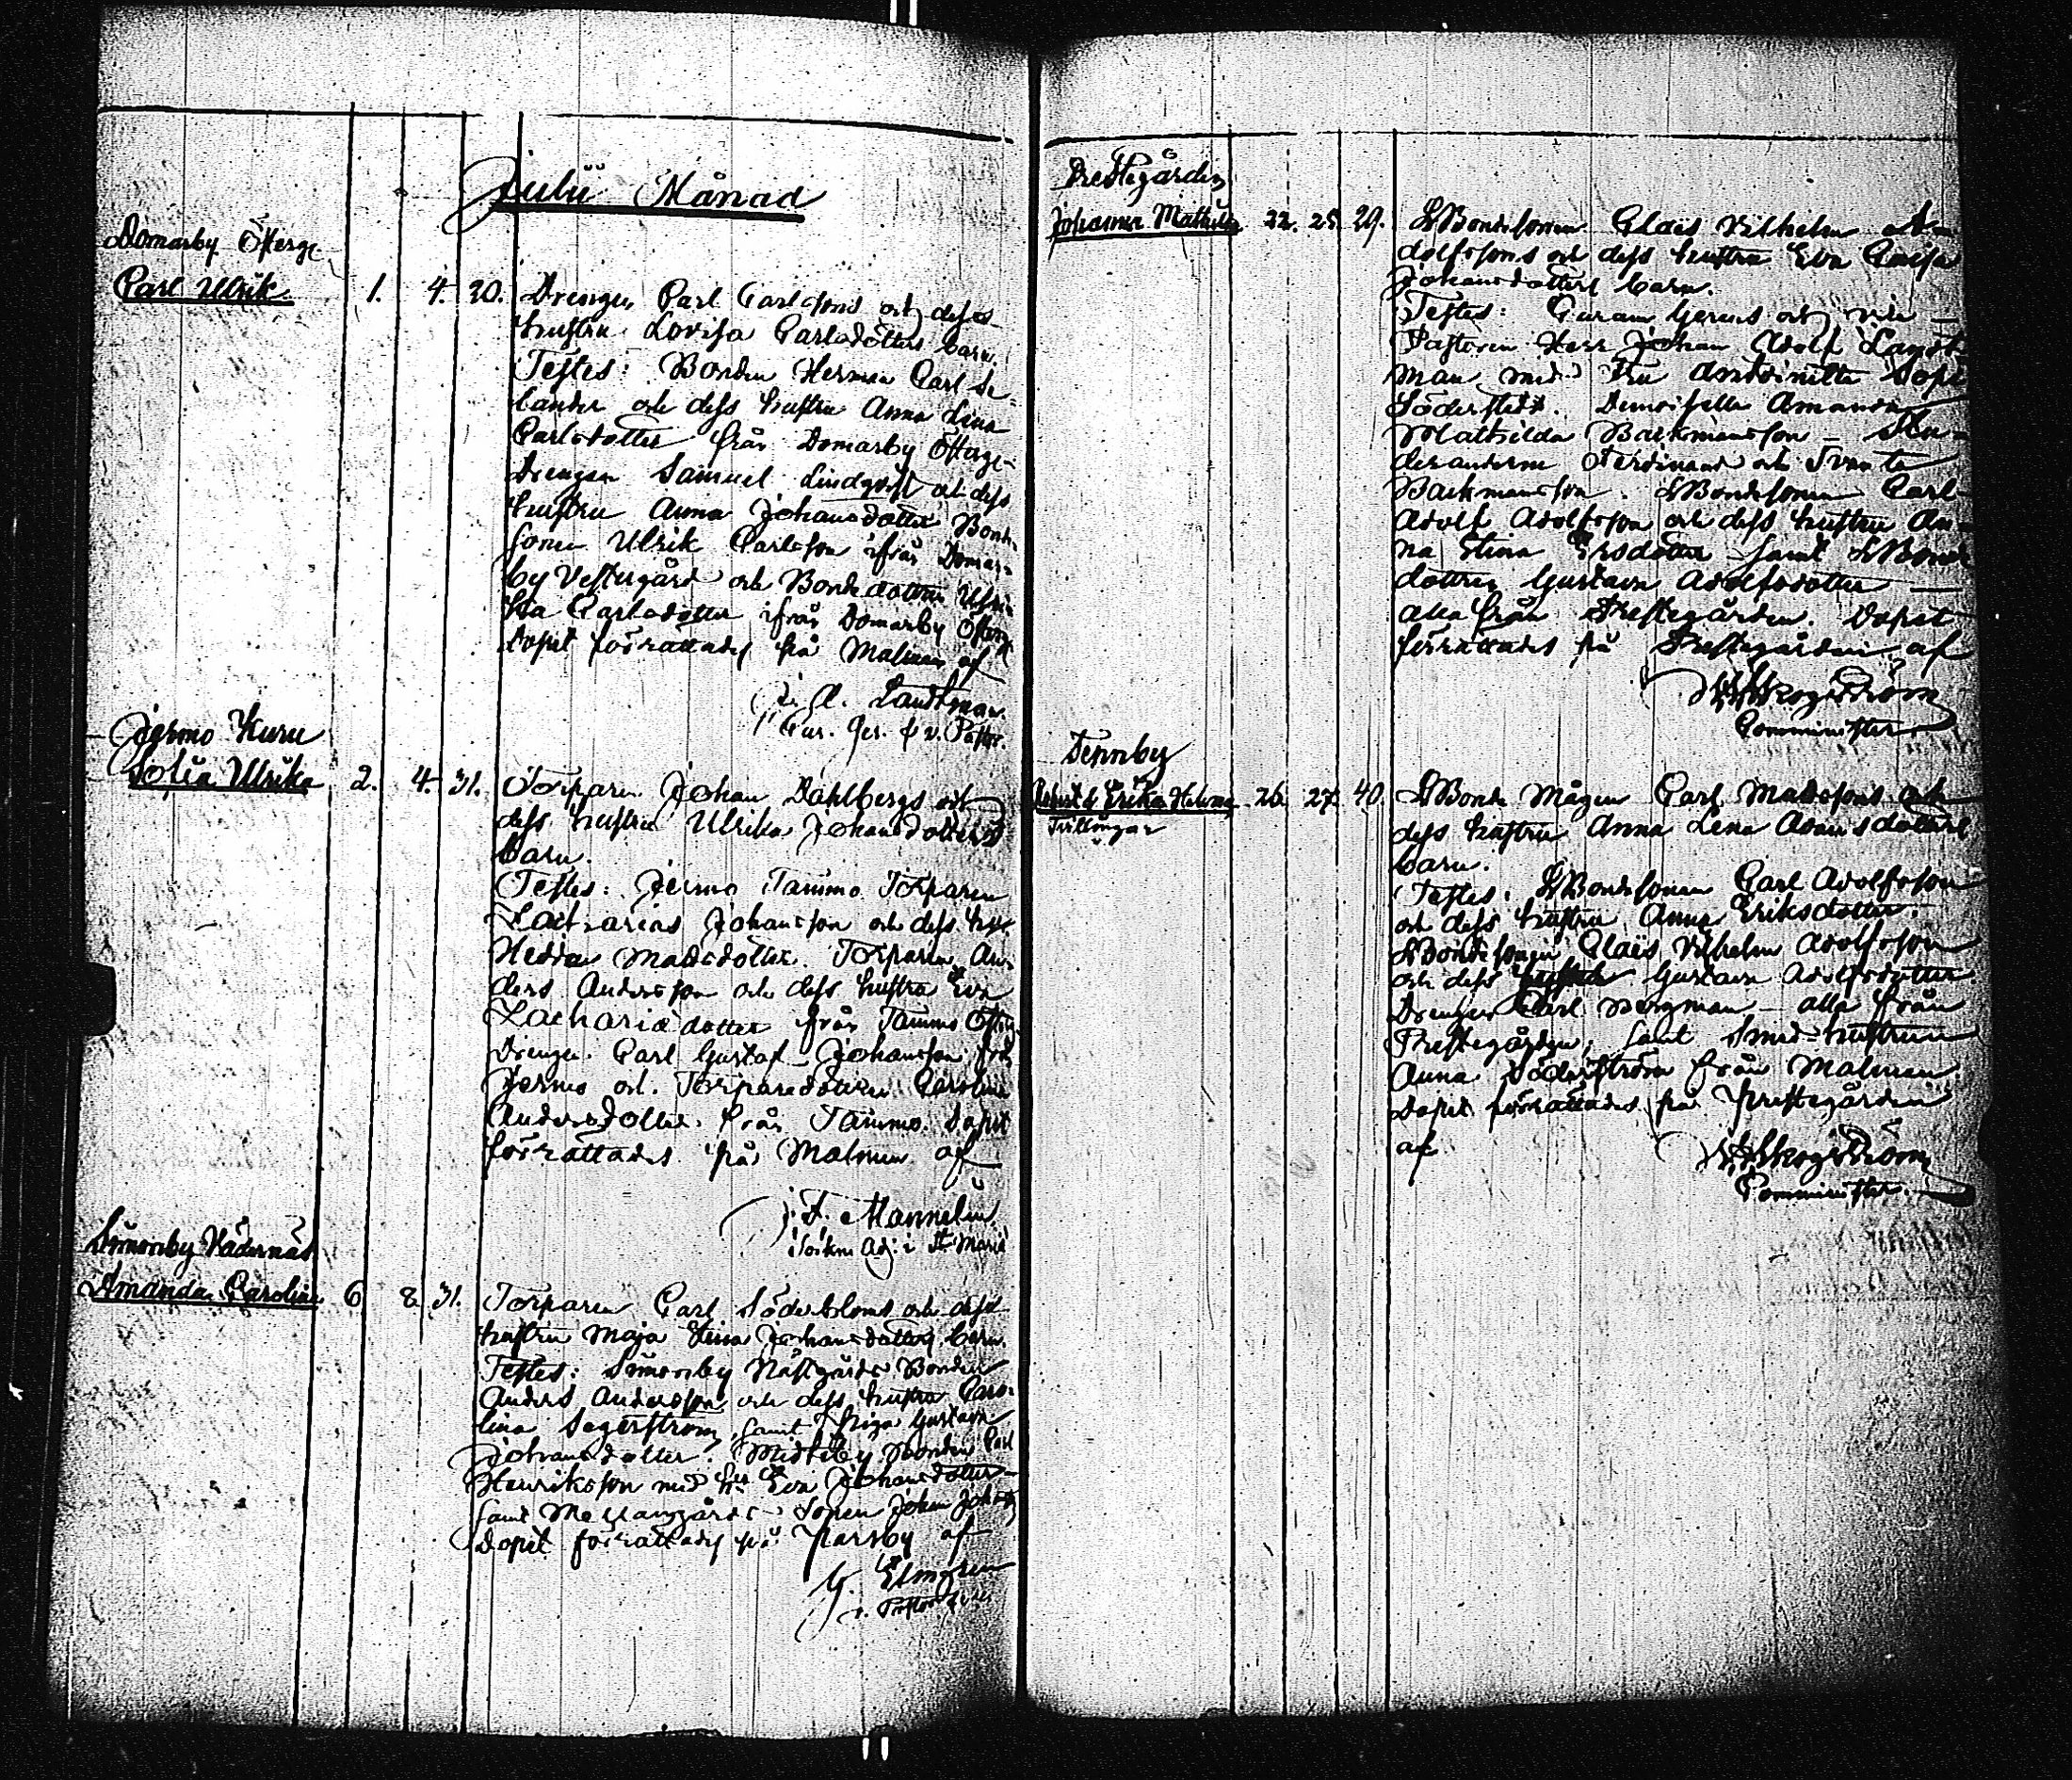 Julii Månad
Domarby Österg.
Carl Ulrik. 1. 4. 20. Drengen Carl Carlssons och dess
hustru Lovisa Carlsdotters barn.
Testes: Bonden Herman Carl Se-
lander och dess hustru Anna Lena
Carlsdotter från Domarby Österg-
Drengen Samuel Lindqvist och dess
hustru Anna Johansdotter Bonde
sonen Ulrik Carlsson ifrån Domar-
by Vestergård och Bondedottren Ulri-
ka Carlsdotter ifrån Domarby Österg
Dopet förrättades på Malmen af
J. A. Landtman.
Cur. Ger. & v. Pastor.
Jermo Kuru
Sofia Ulrika 2. 4. 31. Torparen Johan Dahlbergs och
dess hustru Ulrika Johansdotters
barn.
Testes: Jermo Tammo Torparen
Zacharias Johansson och dess hu
Hedda Matsdotter. Torparen An-
ders Andersson och dess hustru Eva
Zachariædotter från Tammo
Drengen Carl Gustaf Johansson från
Jermo och Torparedottren Carolina
Andersdotter från Tammo. Dopet
förrättades på Malmen af
J. F. Mannelin
Sockne Adj: i St Marie
Simonby Nådernäs
Amanda Carolina 6. 8. 31. Torparen Carl Söderbloms och dess
hustru Maja Stina Johansdotters barn.
Testes: Simonby Bonden
Anders Andersson och dess hustru Caro-
lina Segerström, samt Piga Gustava
Johansdotter. Bonden Carl
Henriksson med hu Eva Johansdotter
samt Mellangårds Sonen Johan
Dopet förrättades på Parsby af
G. Elmgren
v. Pastor
Prestegården
Johanna Mathilda 22. 25. 29. Bondesonen Claës Vilhelm A-
dolfssons och dess hustru Eva Caisa
Johansdotters barn.
Testes: Curam Gerens och vice
Pastoren Herr Johan Adolf Landt-
man med Fru Antoinette Sofi
Söderstedt. Demoiselle Amanda
Mathilda Backmansson - Stu-
deranderne Ferdinand och Svante
Backmansson. Bondesonen Carl
Adolf Adolfsson och dess hustru An-
na Stina Ersdotter samt Bonde
dottren Gustava Adolfsdotter
alla från Prestegården. Dopet
förrättades på Prestegården af
Skogström
Comminister
Tennby
& Erika Helena 26. 27. 40. Bonde Mågen Carl Matssons och
Tvillingar
dess hustru Anna Lena Adamsdotters
barn.
Testes: Bondesonen Carl Adolfsson
och dess hustru Anna Eriksdotter.
Bondesonen Claës Vilhelm Adolfsson
och dess Gustava Adolfsdotter
Drengen Carl Bergman alla från
Prestegården, samt Smed-hustrun
Anna Söderström från Malmen
Dopet förrättades på Prestegården
af
Skogström
Comminister.